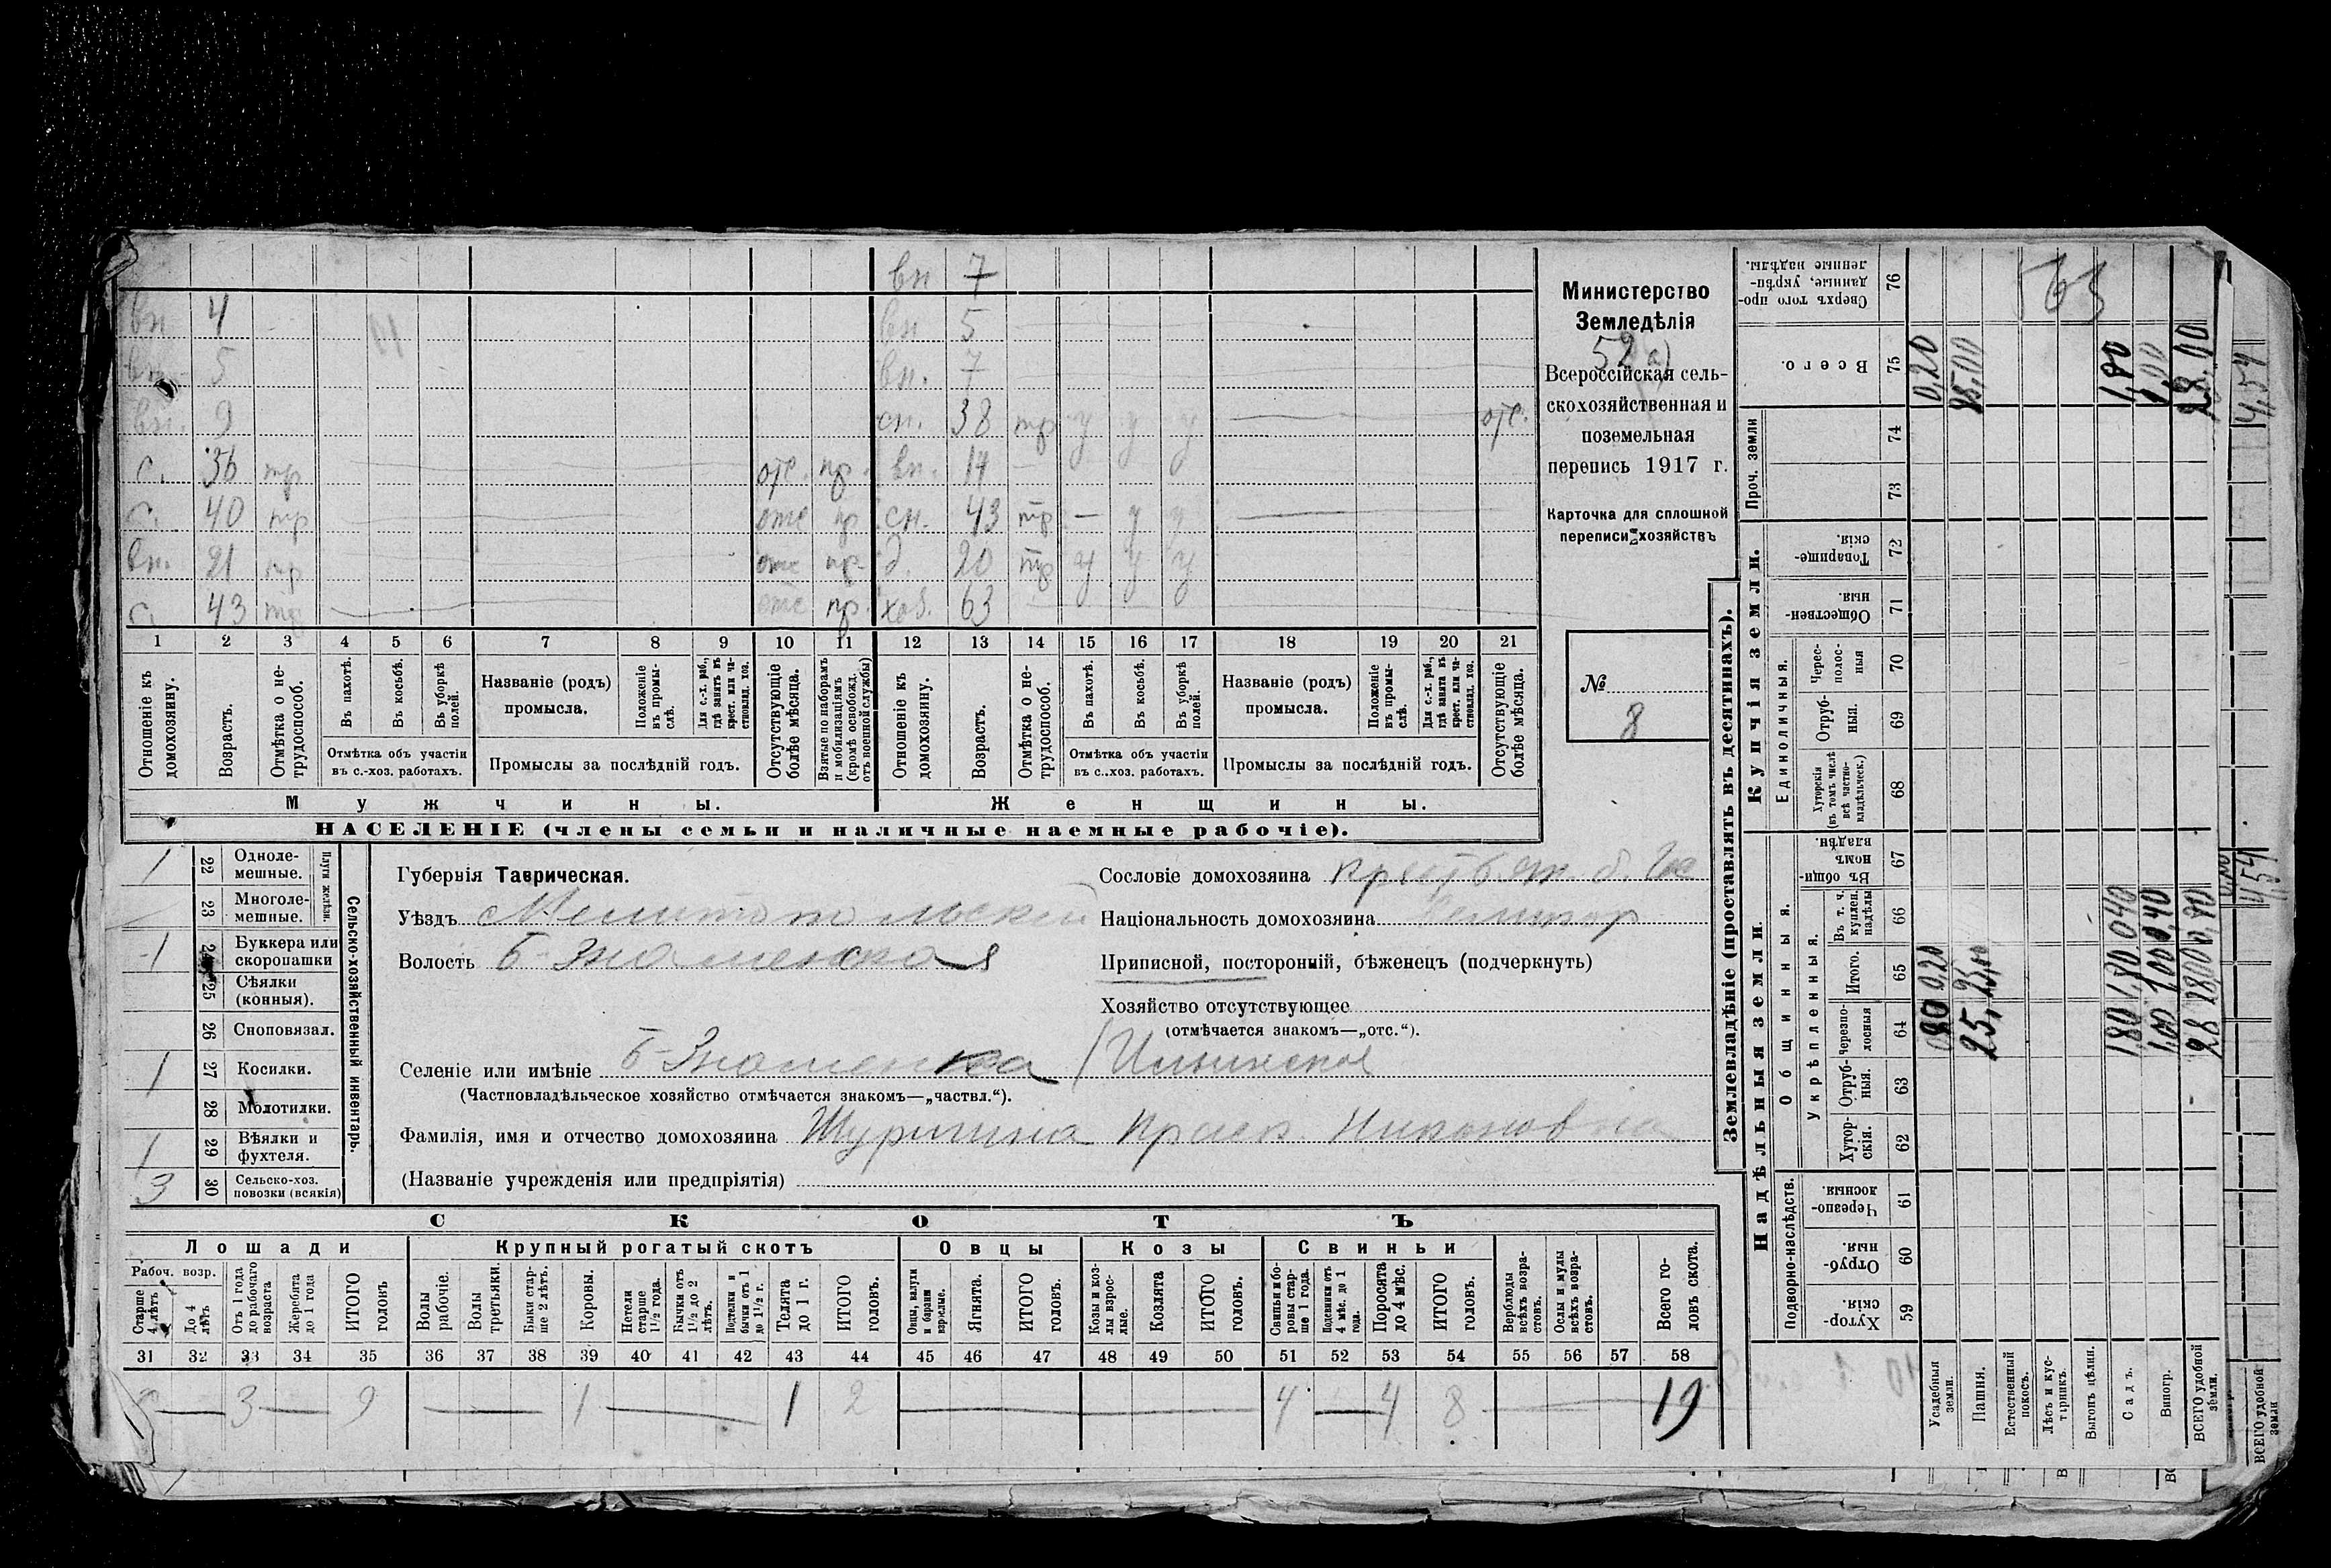 вн 7
вн 4 вн 5
вн. 5 вн. 7
вн. 9 сн. 38 тр у у у отс.
с. 36 тр отс. пр. вн. 14
с. 40 тр отс пр сн. 43 тр — у у
вн. 21 тр отс пр д. 20 тр у у у
с. 43 тр отс пр. хоз. 63
1 2 3 4 5 6 7 8 9 10 11 12 13 14 15 16 17 18 19 20 21
Отношеніе къ домохозяину.
Возрастъ.
Отмѣтка о не-трудоспособ.
Въ пахотѣ.
Въ косьбѣ.
Въ уборкѣ полей.
Отмѣтка объ участіи въ с.-хоз. работахъ.
Названіе (родъ) промысла.
Положеніе въ промы-слѣ.
Для с.-х. раб., гдѣ занятъ въ крест. или ча-стновлад. хоз.
Промыслы за послѣдній годъ.
Отсутствующіе болѣе мѣсяца.
Взятые по наборамъ и мобилизаціямъ (кромѣ освобожд. отъ военной службы)
Отношеніе къ домохозяину.
Возрастъ.
Отмѣтка о не-трудоспособ.
Въ пахотѣ.
Въ косьбѣ.
Въ уборкѣ полей.
Отмѣтка объ участіи въ с..хоз. работахъ.
Названіе (родъ) промысла.
Положеніе въ промы-слѣ.
Для с.-х. раб., гдѣ занята въ крест. или ча-стновлад. хоз.
Промыслы за послѣдній годъ.
Отсутствующіе болѣе мѣсяца.
Мужчины. Женщины.
НАСЕЛЕНІЕ (члены семьи и наличные наемные рабочіе).
Министерство
Земледѣлія
52 а)
Всероссійская сель-
скохозяйственная и
поземельная
перепись 1917 г.
Карточка для сплошной
переписи хозяйствъ
№
8
1 22 Одноле-мешные.
23 Многоле-мешные.
Плуги желѣзн.
1 24 Буккера или скоропашки
25 Сѣялки (конныя).
26 Сноповязал.
1 27 Косилки.
28 Молотилки.
1 29 Вѣялки и фухтеля.
3 30 Сельско-хоз. повозки (всякія)
Сельско-хозяйственный инвентарь.
Губернія Таврическая.
Уѣздъ Мелитопольский
Волость Б-Знаменская
Сословіе домохозяина
Національность домохозяина
Приписной, посторонній, бѣженецъ (подчеркнуть)
Хозяйство отсутствующее
(отмѣчается знакомъ—„отс.“).
Селеніе или имѣніе Б-Знаменка /Ильинское
(Частновладѣльческое хозяйство отмѣчается знакомъ—„частвл.“).
Фамилія, имя и отчество домохозяина Шурыгина Праск. Никоновна
(Названіе учрежденія или предпріятія)
СКОТЪ
Лошади Крупный рогатый скотъ Овцы Козы Свиньи
Рабоч. возр.
Старше 4 лѣтъ
До 4 лѣтъ
Отъ 1 года до рабочаго возраста
Жеребята до 1 года
ИТОГО головъ
Волы рабочіе.
Волы третьяки.
Быки стар-ше 2 лѣтъ.
Коровы.
Нетели старше 1½ года.
Бычки отъ 1½ до 2 лѣтъ.
Подтелки и бычки отъ 1 до 1½ г.
Телята до 1 г.
ИТОГО головъ.
Овцы, валухи и бараны взрослые.
Ягнята.
ИТОГО головъ.
Козы и коз-лы взрос-лые.
Козлята
ИТОГО головъ.
Свиньи и бо-ровы стар-ше 1 года.
Подсвинки отъ 4 мѣс. до 1 года.
Поросята до 4 мѣс.
ИТОГО головъ.
Верблюды всѣхъ возра-стовъ.
Ослы и мулы всѣхъ возра-стовъ.
Всего го-ловъ скота.
31 32 33 34 35 36 37 38 39 40 41 42 43 44 45 46 47 48 49 50 51 52 53 54 55 56 57 58
— 3 — 9 — — 1 — 1 2 — 4 — 4 8 — 19
Землевладѣніе (проставлять въ десятинахъ).
Надѣльныя земли. Купчія земли.
Подворно-наслѣдств.
Общинныя.
Укрѣпленныя.
Единоличныя.
Проч. земли
Хутор-скія. 59
Отруб-ныя. 60
Черезпо-лосныя. 61
Хутор-скія. 62
Отруб-ныя. 63
Черезпо-лосныя 64
Итого. 65
Въ т. ч. куплен. надѣлы 66
Въ общин-номъ владѣн. 67
Хуторскія (въ томъ числѣ всѣ частно-владѣльческ.) 68
Отруб-ныя. 69
Черес-полос-ныя 70
Обществен-ныя. 71
Товарище-скія. 72
73
74
Всего. 75
Сверхъ того про-данные, укрѣп-ленные надѣлы. 76
563
Усадебныя земли. 0,20 0,20
Пашня. 25, 25,00 25,00
Естественный покосъ.
Лѣсъ и кус-тарникъ.
Выгонъ цѣлин.
Садъ. 1,80 1,80 1,80
Виногр. 1,00 1,00 1,00
ВСЕГО удобной земли. 28 28,00
ВСЕГО удобной земли 4,54 4,54